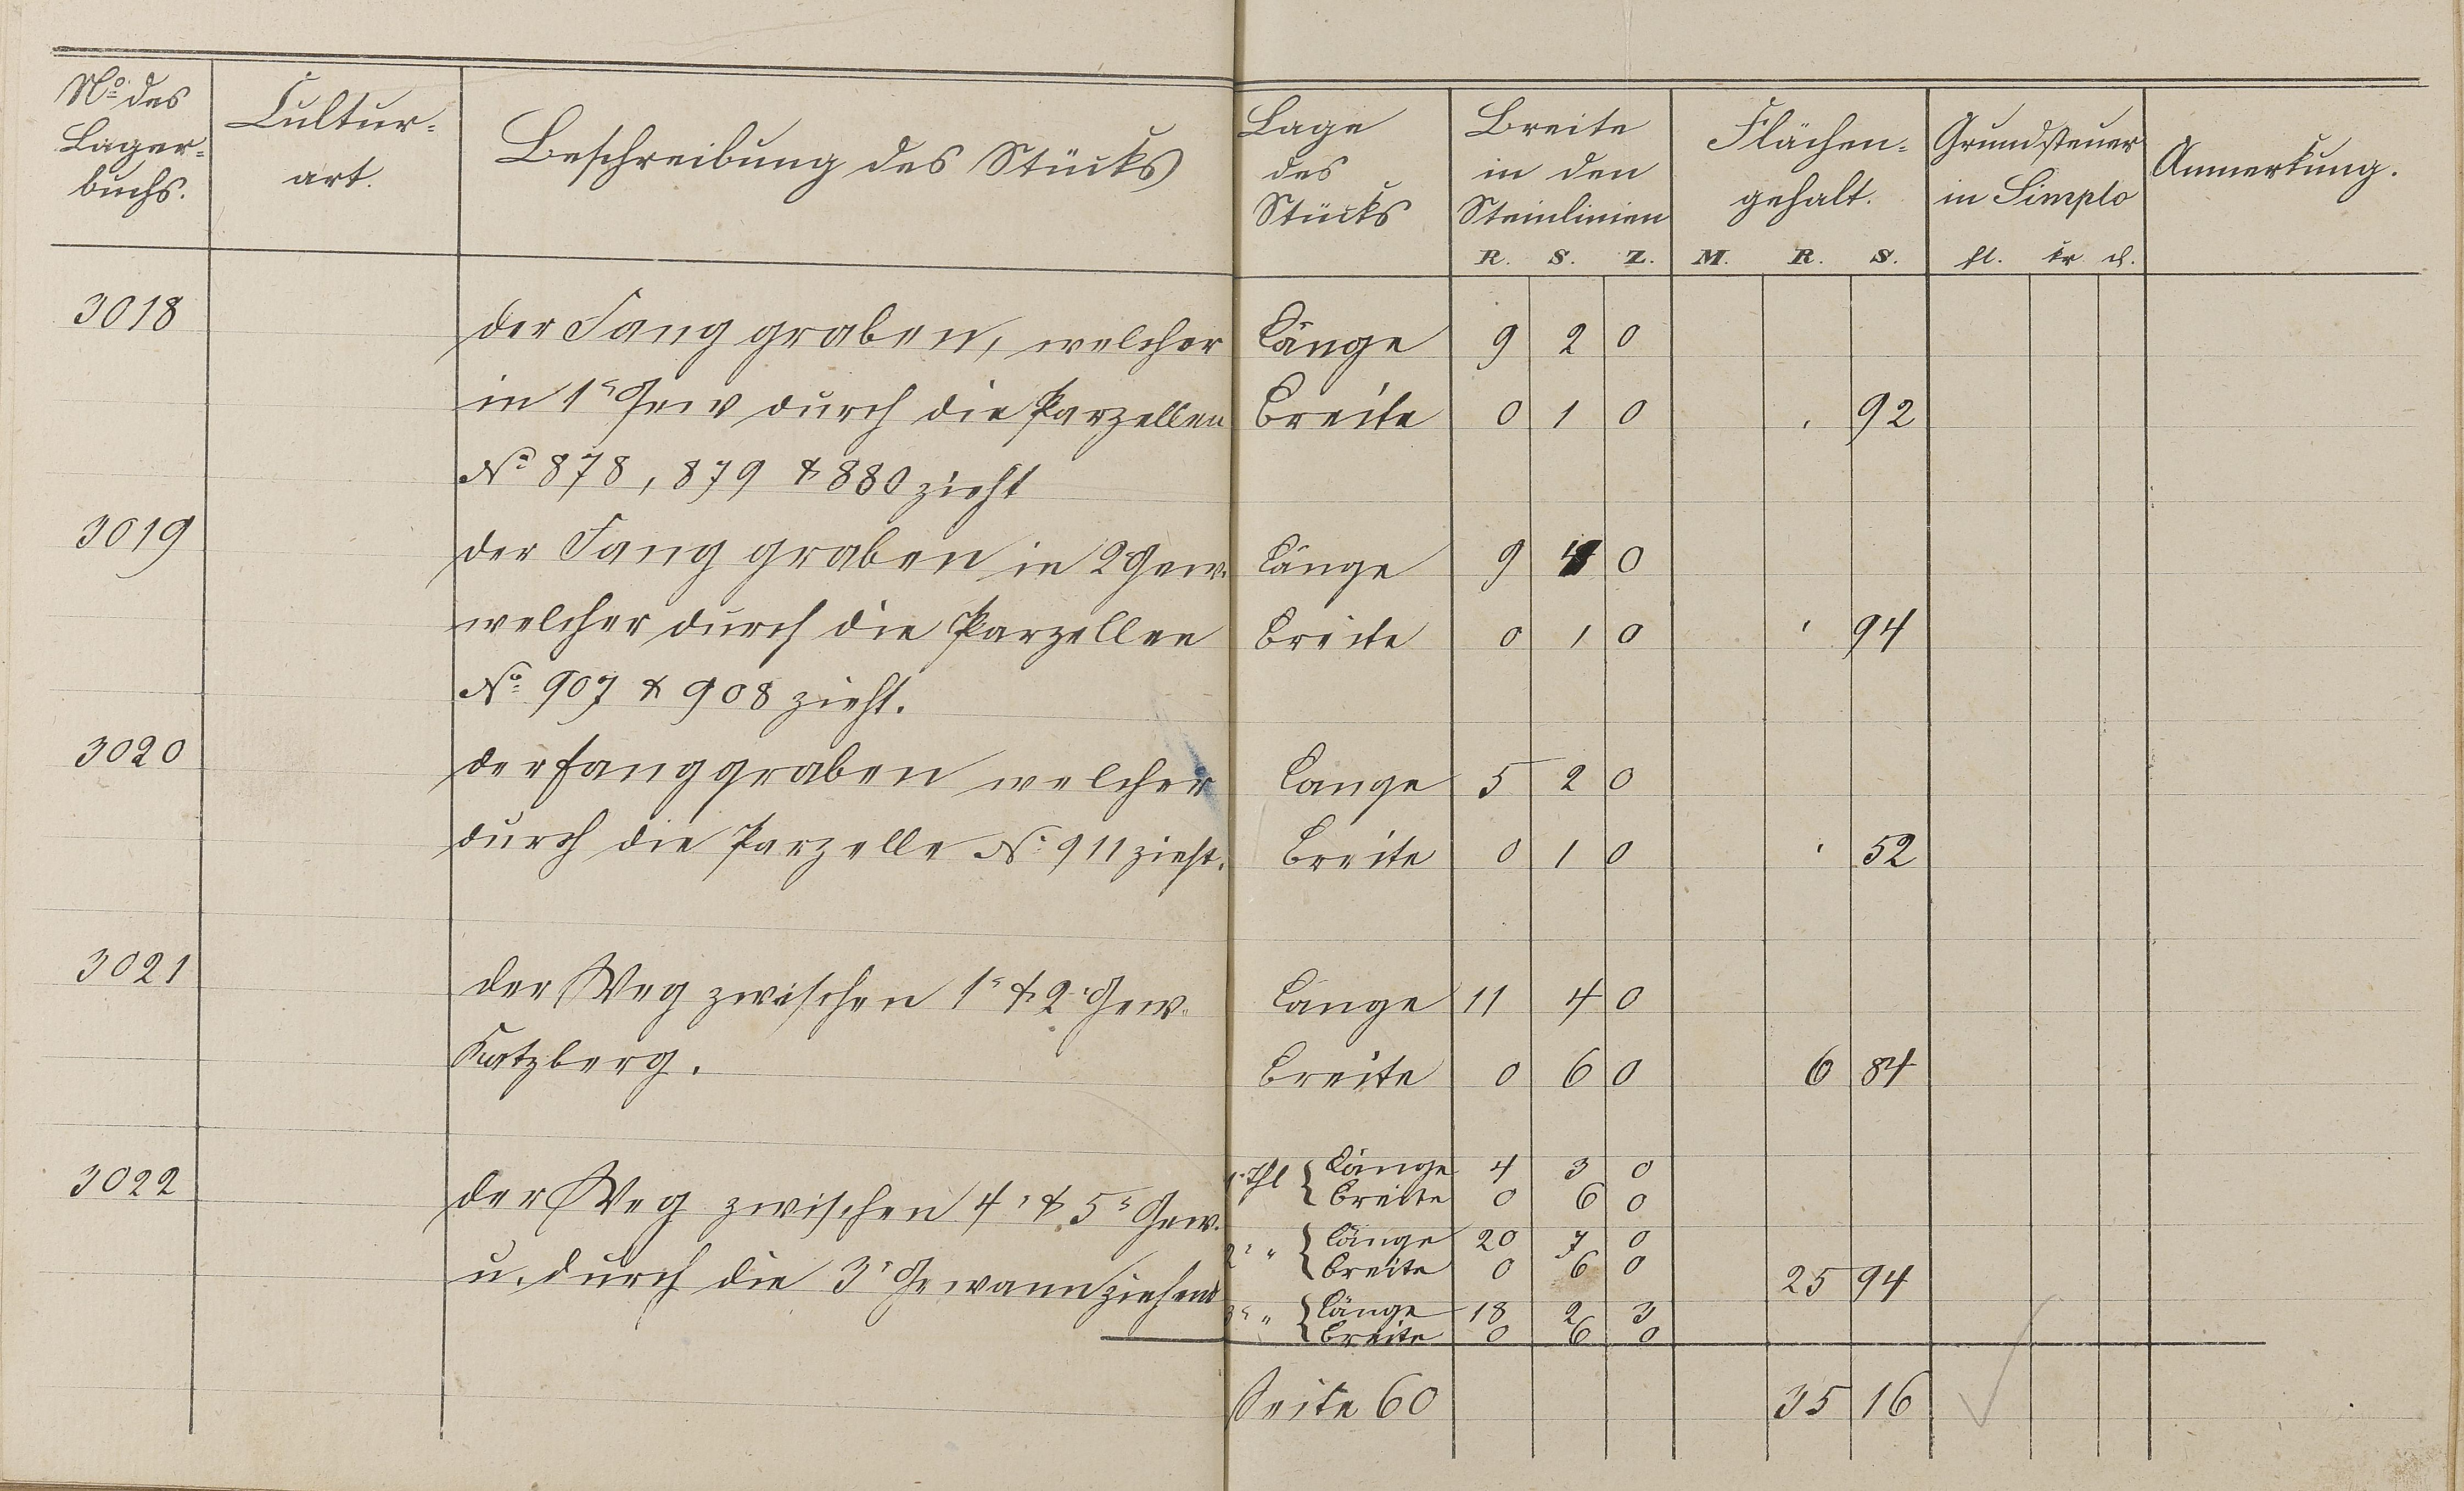 No. des Lager-buchs. Cultur-art. Beschreibung des Stücks Lage des Stücks Breite in den Steinlinien Flächen-gehalt. Grundsteuer in Simplo Anmerkung.
R. S. Z. M. R. S. fl. kr d.
3018 der Fanggraben, welcher Länge 9 2 0
in 1r Gew durch die Parzellen Breite 0 1 0 , 92
No 878, 879 & 880 zieht
3019 der Fanggraben in 2 Gew. Länge 9 4 0
welcher durch die Parzellen Breite 0 1 0 ' 94
No. 907 & 908 zieht.
3020 der Fanggraben welcher Länge 5 2 0
durch die Parzelle No. 911 zieht. Breite 0 1 0 ' 52
3021 der Weg zwischen 1r & 2r Gew. Länge 11 4 0
Katzberg. Breite 0 6 0 6 84
3022 der Weg zwischen 4r & 5r Gew. 1r Thl { Länge 4 3 0
Breite 0 6 0
u. durch die 3r Gewann ziehend 2r " { Länge 20 7 0
Breite 0 6 0 25 94
3r " { Länge 18 2 3
Breite 0 6 0
Seite 60 35 16